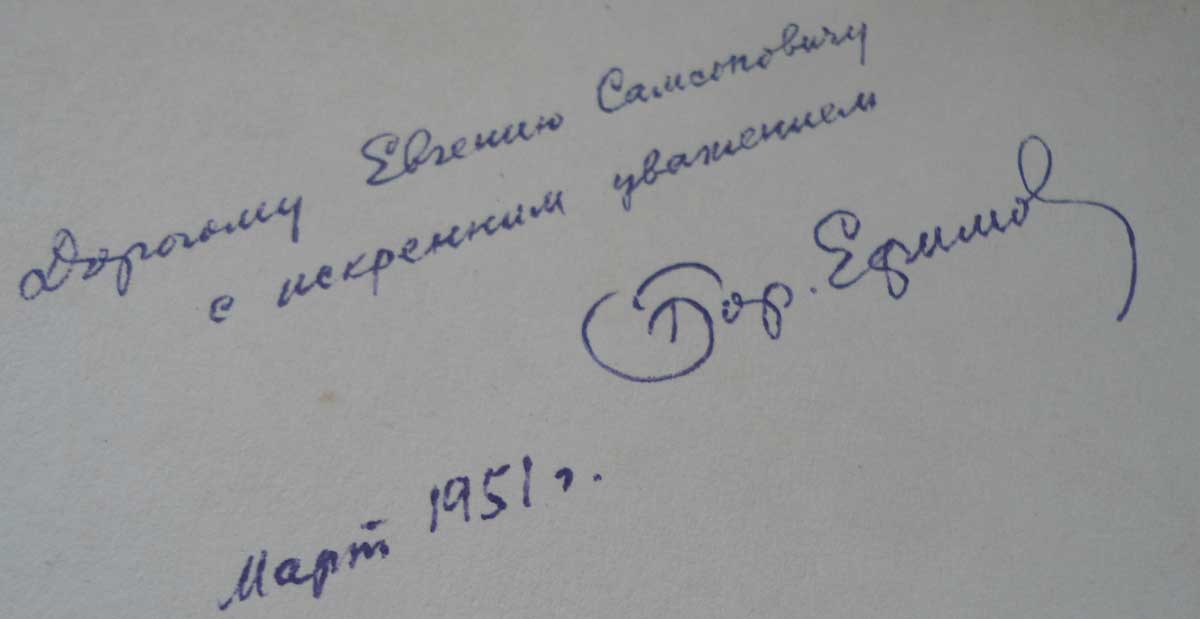 Дорогому Евгению Самсоновичу
с искренним уважением
Бор. Ефимов
Март 1951 г.